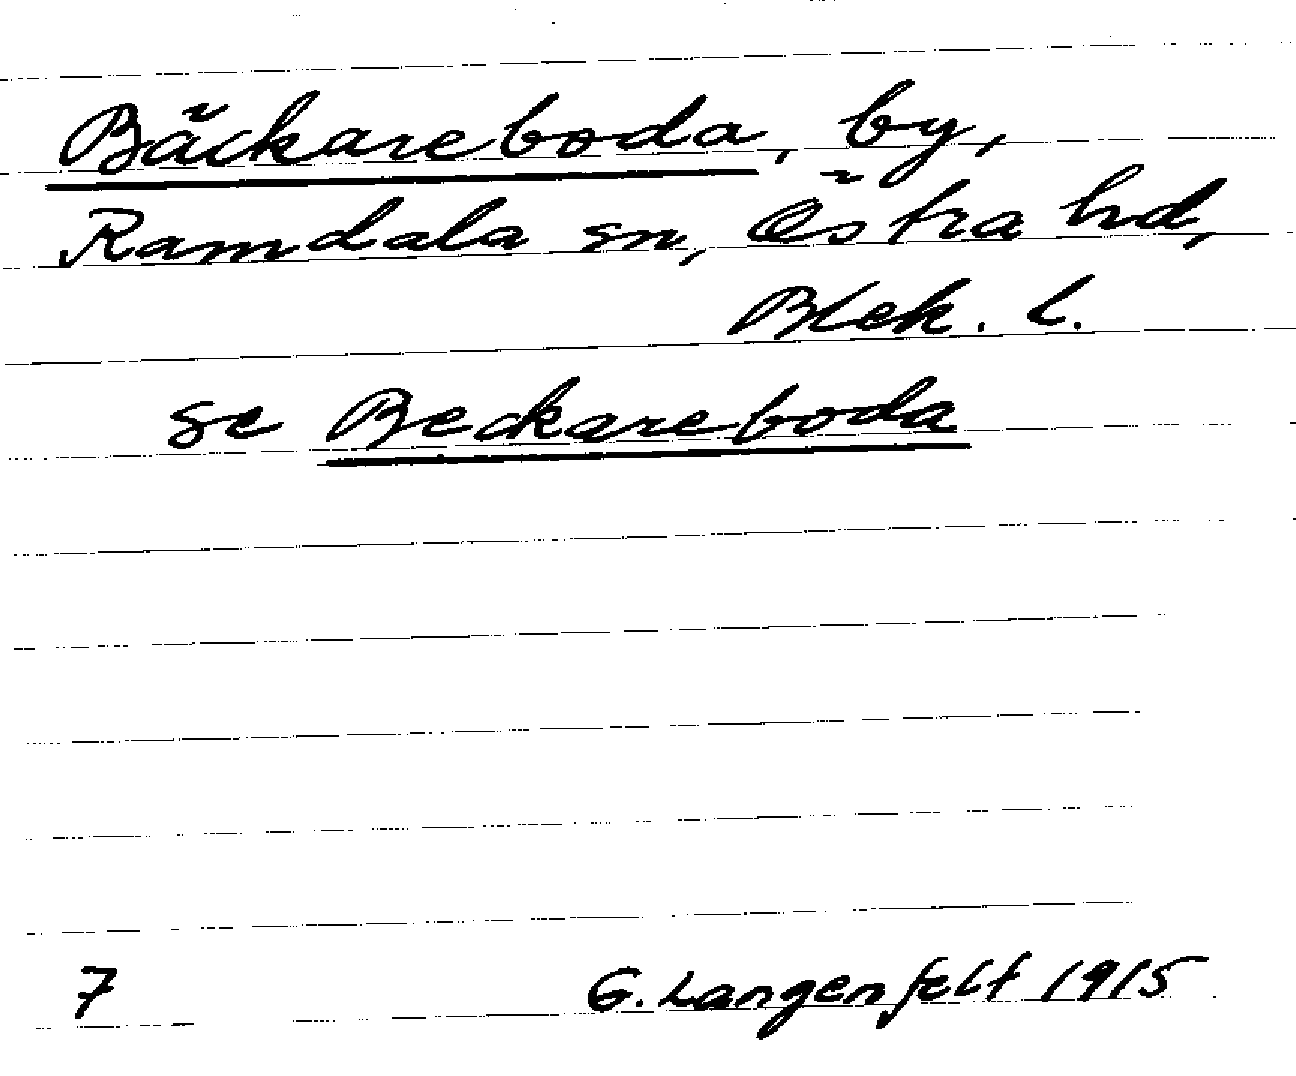 Bäckareboda, by,
Ramdala sn, Östra hd,
Blek. l.
se Beckareboda
7 G. Langenfelt 1915